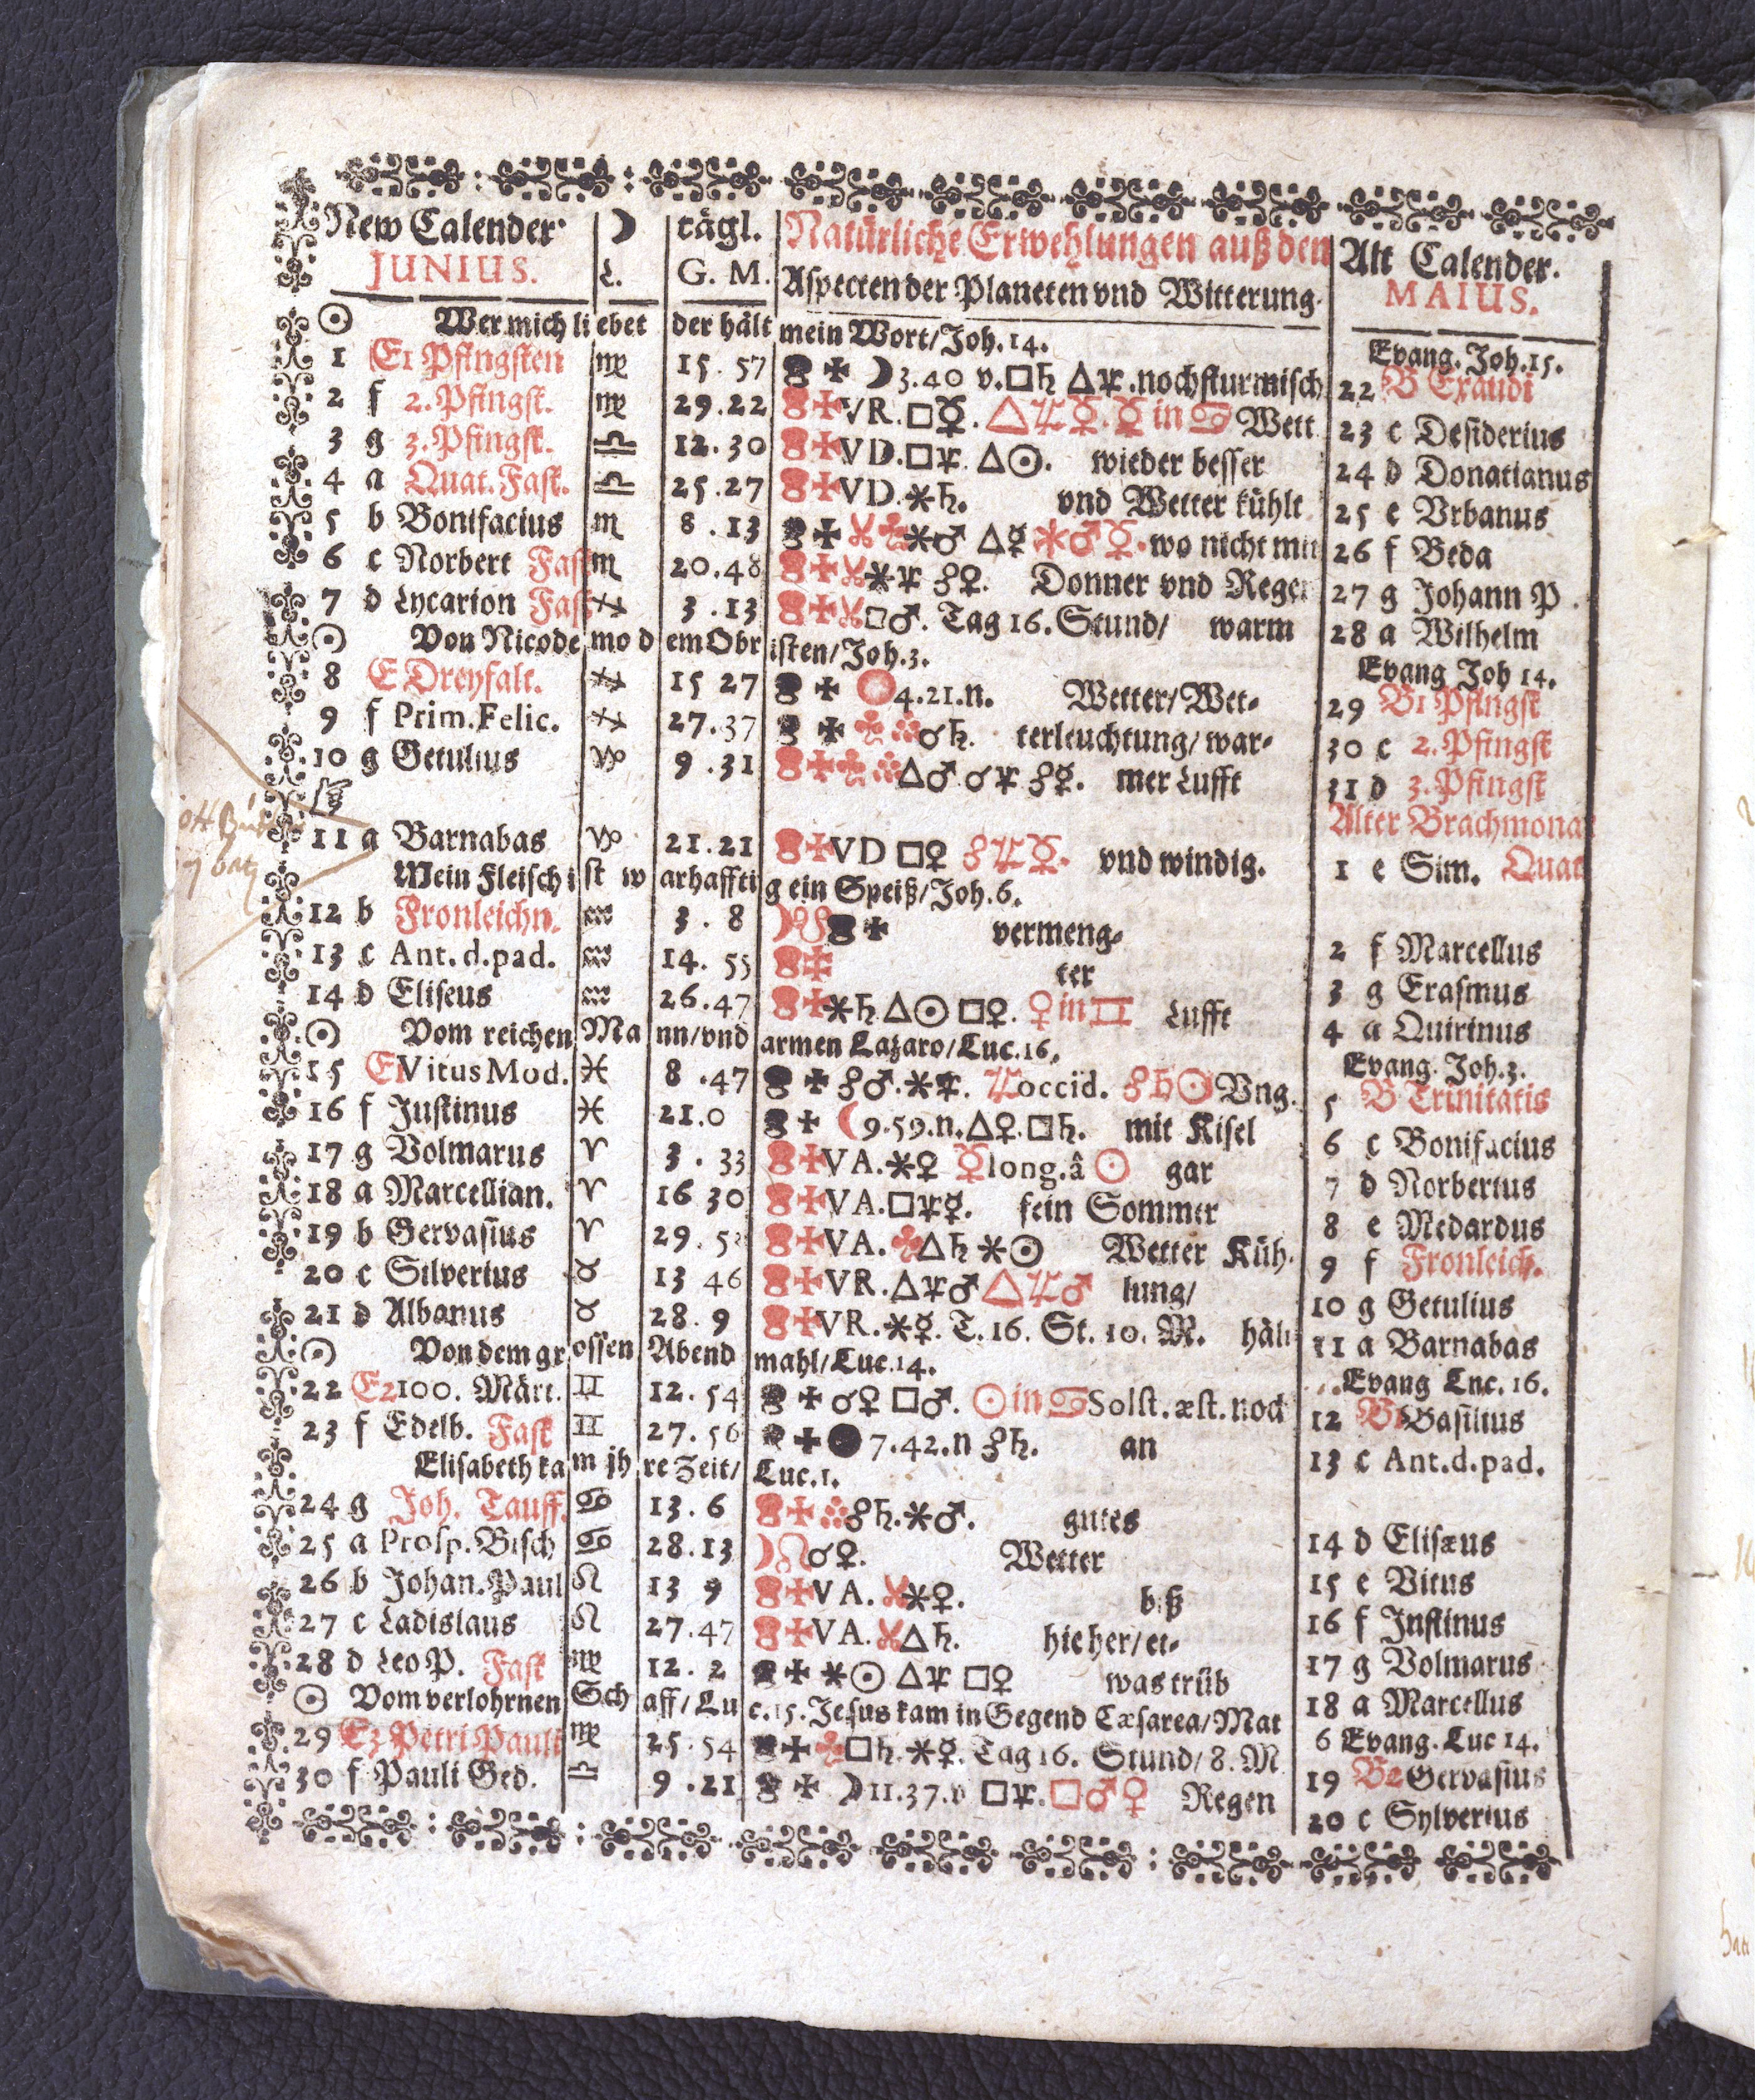 New Calender ☽ tägl. Natürliche Erwehlungen auß den Alt Calender.
JUNIUS. L. G. M. Aspecten der Planeten vnd Witterung. MAIUS.
☉ Wer mich liebet der hält mein Wort/Joh. 14. Evang. Joh. 15.
1 E1 Pfingsten ♍ 15. 57 ☽ 3. 40 v. □♄ △♃. noch sturmisch 22 B Exaudi
2 f 2. Pfingst. ♍ 29. 22 VR. □☿. △♃☿. ☿ in ♋ Wett 23 c Desiderius
3 g 3. Pfingst. ♎ 12. 30 VD. □♃. △☉. wieder besser 24 d Donatianus
4 a Quat. Fast. ♎ 25. 27 VD. ⚹♄. vnd Wetter kühlt 25 e Vrbanus
5 b Bonifacius ♏ 8. 13 ⚹♂ △☿ ⚹♂☿. wo nicht mit 26 f Beda
6 c Norbert Fast ♏ 20. 48 ⚹♃ ☍♀. Donner vnd Regen 27 g Johann P.
7 d Lycarion Fast ♐ 3. 13 □♂. Tag 16. Stund/ warm 28 a Wilhelm
☉ Von Nicodemo dem Obristen/Joh. 3. Evang Joh 14.
8 E Dreyfalt. ♐ 15 27 4. 21. n. Wetter/ Wet- 29 B1 Pfingst
9 f Prim. Felic. ♐ 27. 37 ☌♄. terleuchtung/ war- 30 c 2. Pfingst
10 g Getulius ♑ 9. 31 △♂ ☌♃ ☍☿. mer Lufft 31 d 3. Pfingst
☞ Alter Brachmonat
11 a Barnabas ♑ 21. 21 VD □♀ ☍♃☿. vnd windig. 1 e Sim. Quat
7 batz
Mein Fleisch ist warhafftig ein Speiß/Joh. 6.
12 b Fronleichn. ♒ 3. 8 ☽☋ vermeng- 2 f Marcellus
13 c Ant. d. pad. ♒ 14. 55 ter 3 g Erasmus
14 d Eliseus ♒ 26. 47 ⚹♄ △☉ □♀. ♀ in ♊ Lufft 4 a Quirinus
☉ Vom reichen Mann/vnd armen Lazaro/Luc. 16. Evang. Joh. 3.
15 E1 Vitus Mod. ♓ 8. 47 ☍♂. ⚹♃. ♃ occid. ☍♄☉ Vng. 5 B Trinitatis
16 f Justinus ♓ 21. 0 ☾ 9. 59. n. △♀. □♄. mit Kisel 6 c Bonifacius
17 g Volmarus ♈ 3. 33 VA. ⚹♀ ☿ long. â ☉ gar 7 d Norbertus
18 a Marcellian. ♈ 16 30 VA. □♃☿. fein Sommer 8 e Medardus
19 b Gervasius ♈ 29. 5 VA. △♄ ⚹☉ Wetter Küh- 9 f Fronleich.
20 c Silverius ♉ 13 46 VR. △♃♂ △♃♂ lung/ 10 g Getulius
21 d Albanus ♉ 28. 9 VR. ⚹☿. T. 16. St. 10. M. hält 11 a Barnabas
☉ Von dem grossen Abendmahl/Luc. 14. Evang Luc. 16.
22 E2 100. Märt. ♊ 12. 54 ☌♀ □♂. ☉ in ♋ Solst. æst. noch 12 B1 Basilius
23 f Edelb. Fast ♊ 27. 56 7. 42. n ☍♄. an 13 c Ant. d. pad.
Elisabeth kam jhre Zeit/ Luc. 1.
24 g Joh. Tauff. ♋ 13. 6 ☍♄. ⚹♂. gutes 14 d Elisæus
25 a Prosp. Bisch ♋ 28. 13 ☽☊ ☌♀. Wetter 15 e Vitus
26 b Johan. Paul ♌ 13 9 VA. ⚹♀. biß 16 f Justinus
27 c Ladislaus ♌ 27. 47 VA. △♄. hieher/ et- 17 g Volmarus
28 d Leo P. Fast ♍ 12. 2 ⚹☉ △♃ □♀ was trüb 18 a Marcellus
☉ Vom verlohrnen Schaff/ Luc. 15. Jesus kam in Gegend Cæsarea/ Mat 6 Evang. Luc 14.
29 E3 Petri Pauli ♍ 25. 54 □♄. ⚹☿. Tag 16. Stund/ 8. M 19 B2 Gervasius
30 f Pauli Ged. ♎ 9. 21 ☽ 11. 37. v □♃. □♂♀ Regen 20 c Sylverius